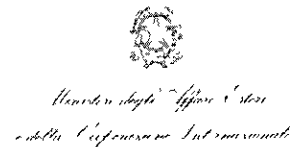 Ministero degli Affari Esteri
e della Cooperazione Internazionale